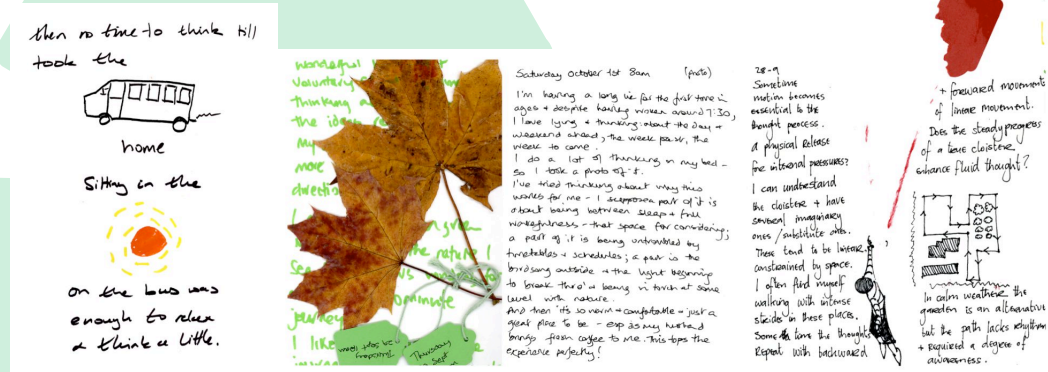 then no time to think till
took the
home
Sitting in the
on the bus was
enough to relax
& think a little.
wonderful
voluntary
thinking a
the idea
my
more
directi
the nature
journey
I like
Thursday
Sept
Saturday October 1st 8am (photo)
I'm having a long lie for the first time in
ages & despite having woken around 7:30,
I love lying & thinking: about the day &
weekend ahead, the week past, the
week to come.
I do a lot of thinking in my bed –
so I took a photo of it.
I've tried thinking about why this
works for me – I suppose a part of it is
about being between sleep & full
wakefulness – that space for considering;
a part of it is being untroubled by
timetables & schedules; a part is the
birdsong outside & the light beginning
to break thro' & being in touch at some
level with nature.
And then it's so warm & comfortable – just a
great place to be – esp as my husband
brings fresh coffee to me. This tops the
experience perfectly!
28-9
Sometime
motion becomes
essential to the
thought process.
a physical release
for internal pressures?
I can understand
the cloister + have
several imaginary
ones / substitute ones.
These tend to be linear,
constrained by space.
I often find myself
walking with intense
strides in these places.
Sometimes the thoughts
Repeat with backward
+ forward movement
of linear movement.
Does the steady progress
of a true cloister
enhance fluid thought?
In calm weather the
garden is an alternative
but the path lacks rhythm
+ required a degree of
awareness.